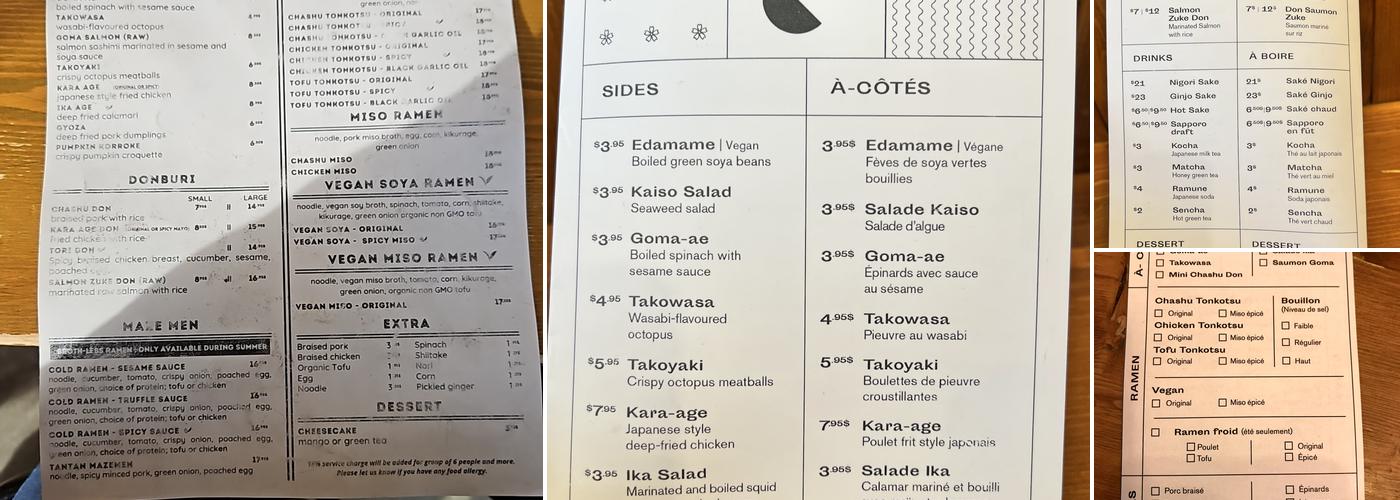 boiled spinach with sesame sauce
TAKOWASA
wasabi-flavoured octopus
GOMA SALMON (RAW)
salmon sashimi marinated in sesame and
soya sauce
TAKOYAKI
crispy octopus meatballs
KARA AGE (ORIGINAL OR SPICY)
japanese style fried chicken
IKA AGE
deep fried calamari
GYOZA
deep fried pork dumplings
PUMPKIN KORROKE
crispy pumpkin croquette
DONBURI
SMALL LARGE
CHASHU DON
braised pork with rice
KARA AGE DON (ORIGINAL OR SPICY MAYO)
fried chicken with rice
TORI DON
Spicy braised chicken breast, cucumber, sesame,
poached
SALMON ZUKE DON (RAW)
marinated raw salmon with rice
MAZE MEN
BROTH-LESS RAMEN : ONLY AVAILABLE DURING SUMMER
COLD RAMEN - SESAME SAUCE
noodle, cucumber, tomato, crispy onion, poached egg,
green onion, choice of protein; tofu or chicken
COLD RAMEN - TRUFFLE SAUCE
noodle, cucumber, tomato, crispy onion, poached egg,
green onion, choice of protein; tofu or chicken
COLD RAMEN - SPICY SAUCE
noodle, cucumber, tomato, crispy onion, poached egg,
green onion, choice of protein; tofu or chicken
TANTAN MAZEMEN
noodle, spicy minced pork, green onion, poached egg
green onion,
CHASHU TONKOTSU - ORIGINAL
CHASHU TONKOTSU - SPICY
CHASHU TONKOTSU - BLACK GARLIC OIL
CHICKEN TONKOTSU - ORIGINAL
CHICKEN TONKOTSU - SPICY
CHICKEN TONKOTSU - BLACK GARLIC OIL
TOFU TONKOTSU - ORIGINAL
TOFU TONKOTSU - SPICY
TOFU TONKOTSU - BLACK GARLIC OIL
MISO RAMEN
noodle, pork miso broth, egg, corn, kikurage,
green onion
CHASHU MISO
CHICKEN MISO
VEGAN SOYA RAMEN
noodle, vegan soy broth, spinach, tomato, corn, shiitake,
kikurage, green onion organic non GMO tofu
VEGAN SOYA - ORIGINAL
VEGAN SOYA - SPICY MISO
VEGAN MISO RAMEN
noodle, vegan miso broth, tomato, corn, kikurage,
green onion, organic non GMO tofu
VEGAN MISO - ORIGINAL
EXTRA
Braised pork
Braised chicken
Organic Tofu
Egg
Noodle
Spinach
Shiitake
Nori
Corn
Pickled ginger
DESSERT
CHEESECAKE
mango or green tea
service charge will be added for group of 6 people and more.
Please let us know if you have any food allergy.
SIDES
$3.95 Edamame | Vegan
Boiled green soya beans
$3.95 Kaiso Salad
Seaweed salad
$3.95 Goma-ae
Boiled spinach with
sesame sauce
$4.95 Takowasa
Wasabi-flavoured
octopus
$5.95 Takoyaki
Crispy octopus meatballs
$7.95 Kara-age
Japanese style
deep-fried chicken
$3.95 Ika Salad
Marinated and boiled squid
À-CÔTÉS
3.95$ Edamame | Végane
Fèves de soya vertes
bouillies
3.95$ Salade Kaiso
Salade d'algue
3.95$ Goma-ae
Épinards avec sauce
au sésame
4.95$ Takowasa
Pieuvre au wasabi
5.95$ Takoyaki
Boulettes de pieuvre
croustillantes
7.95$ Kara-age
Poulet frit style japonais
3.95$ Salade Ika
Calamar mariné et bouilli
$7 | $12 Salmon
Zuke Don
Marinated Salmon
with rice
7$ | 12$ Don Saumon
Zuke
Saumon mariné
sur riz
DRINKS
$21 Nigori Sake
$23 Ginjo Sake
$6.50|$9.50 Hot Sake
$6.50|$9.50 Sapporo
draft
$3 Kocha
Japanese milk tea
$3 Matcha
Honey green tea
$4 Ramune
Japanese soda
$2 Sencha
Hot green tea
DESSERT
À BOIRE
21$ Saké Nigori
23$ Saké Ginjo
6.50$|9.50$ Saké chaud
6.50$|9.50$ Sapporo
en fût
3$ Kocha
Thé au lait japonais
3$ Matcha
Thé vert au miel
4$ Ramune
Soda japonais
2$ Sencha
Thé vert chaud
DESSERT
À-C
Takowasa
Mini Chashu Don
Saumon Goma
RAMEN
Chashu Tonkotsu
Original Miso épicé
Chicken Tonkotsu
Original Miso épicé
Tofu Tonkotsu
Original Miso épicé
Bouillon
(Niveau de sel)
Faible
Régulier
Haut
Vegan
Original Miso épicé
Ramen froid (été seulement)
Poulet
Tofu
Original
Épicé
S
Porc braisé
Épinards